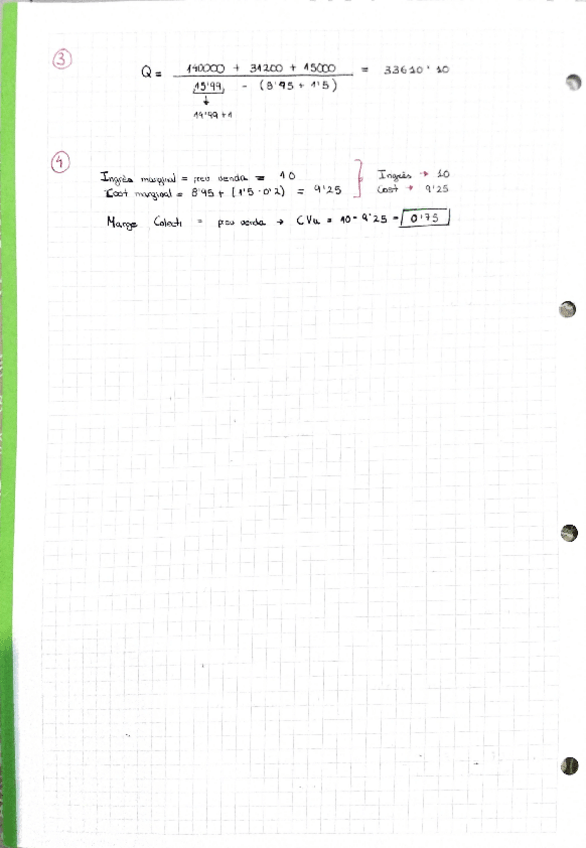 3
Q = 140000 + 31200 + 15000 = 33610'10
15'99 - (8'95 + 1'5)
↓
14'99 + 1
4
Ingrés marginal = preu venda = 10
Cost marginal = 8'95 + (1'5 · 0'2) = 9'25
Ingrés → 10
Cost → 9'25
Marge = preu venda → CVu = 10 - 9'25 = 0'75